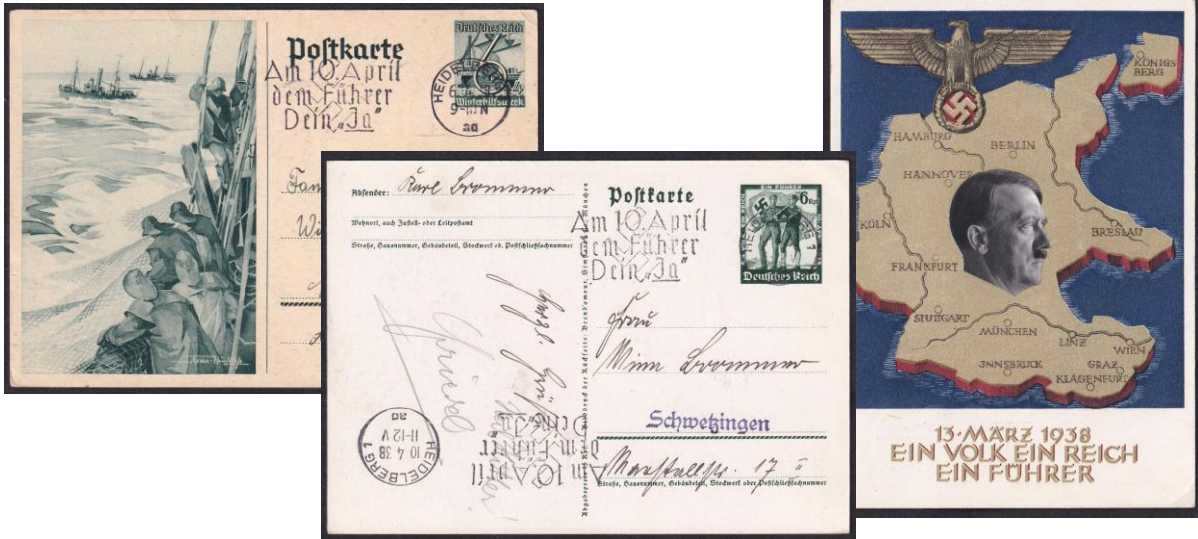 Postkarte
Am 10. April
dem Führer
Dein „Ja"
Deutsches Reich
Winterhilfswerk
HEIDELBERG
9-10 N
ad
Absender: Karl Brommer
Wohnort, auch Zustell- oder Leitpostamt
Straße, Hausnummer, Gebäudeteil, Stockwerk od. Postschließfachnummer
Postkarte
EIN FÜHRER
6
Deutsches Reich
Am 10. April
dem Führer
Dein „Ja"
HEIDELBERG 1
Frau
Brommer
Schwetzingen
17 II
Straße, Hausnummer, Gebäudeteil, Stockwerk oder Postschließfachnummer
Am 10. April
dem Führer
Dein „Ja"
HEIDELBERG 1
10 4 38
11-12 V
ad
KÖNIGS
BERG
HAMBURG
BERLIN
HANNOVER
KÖLN
BRESLAU
FRANKFURT
STUTTGART
MÜNCHEN
LINZ
WIEN
INNSBRUCK
GRAZ
KLAGENFURT
13·MÄRZ 1938
EIN VOLK EIN REICH
EIN FÜHRER